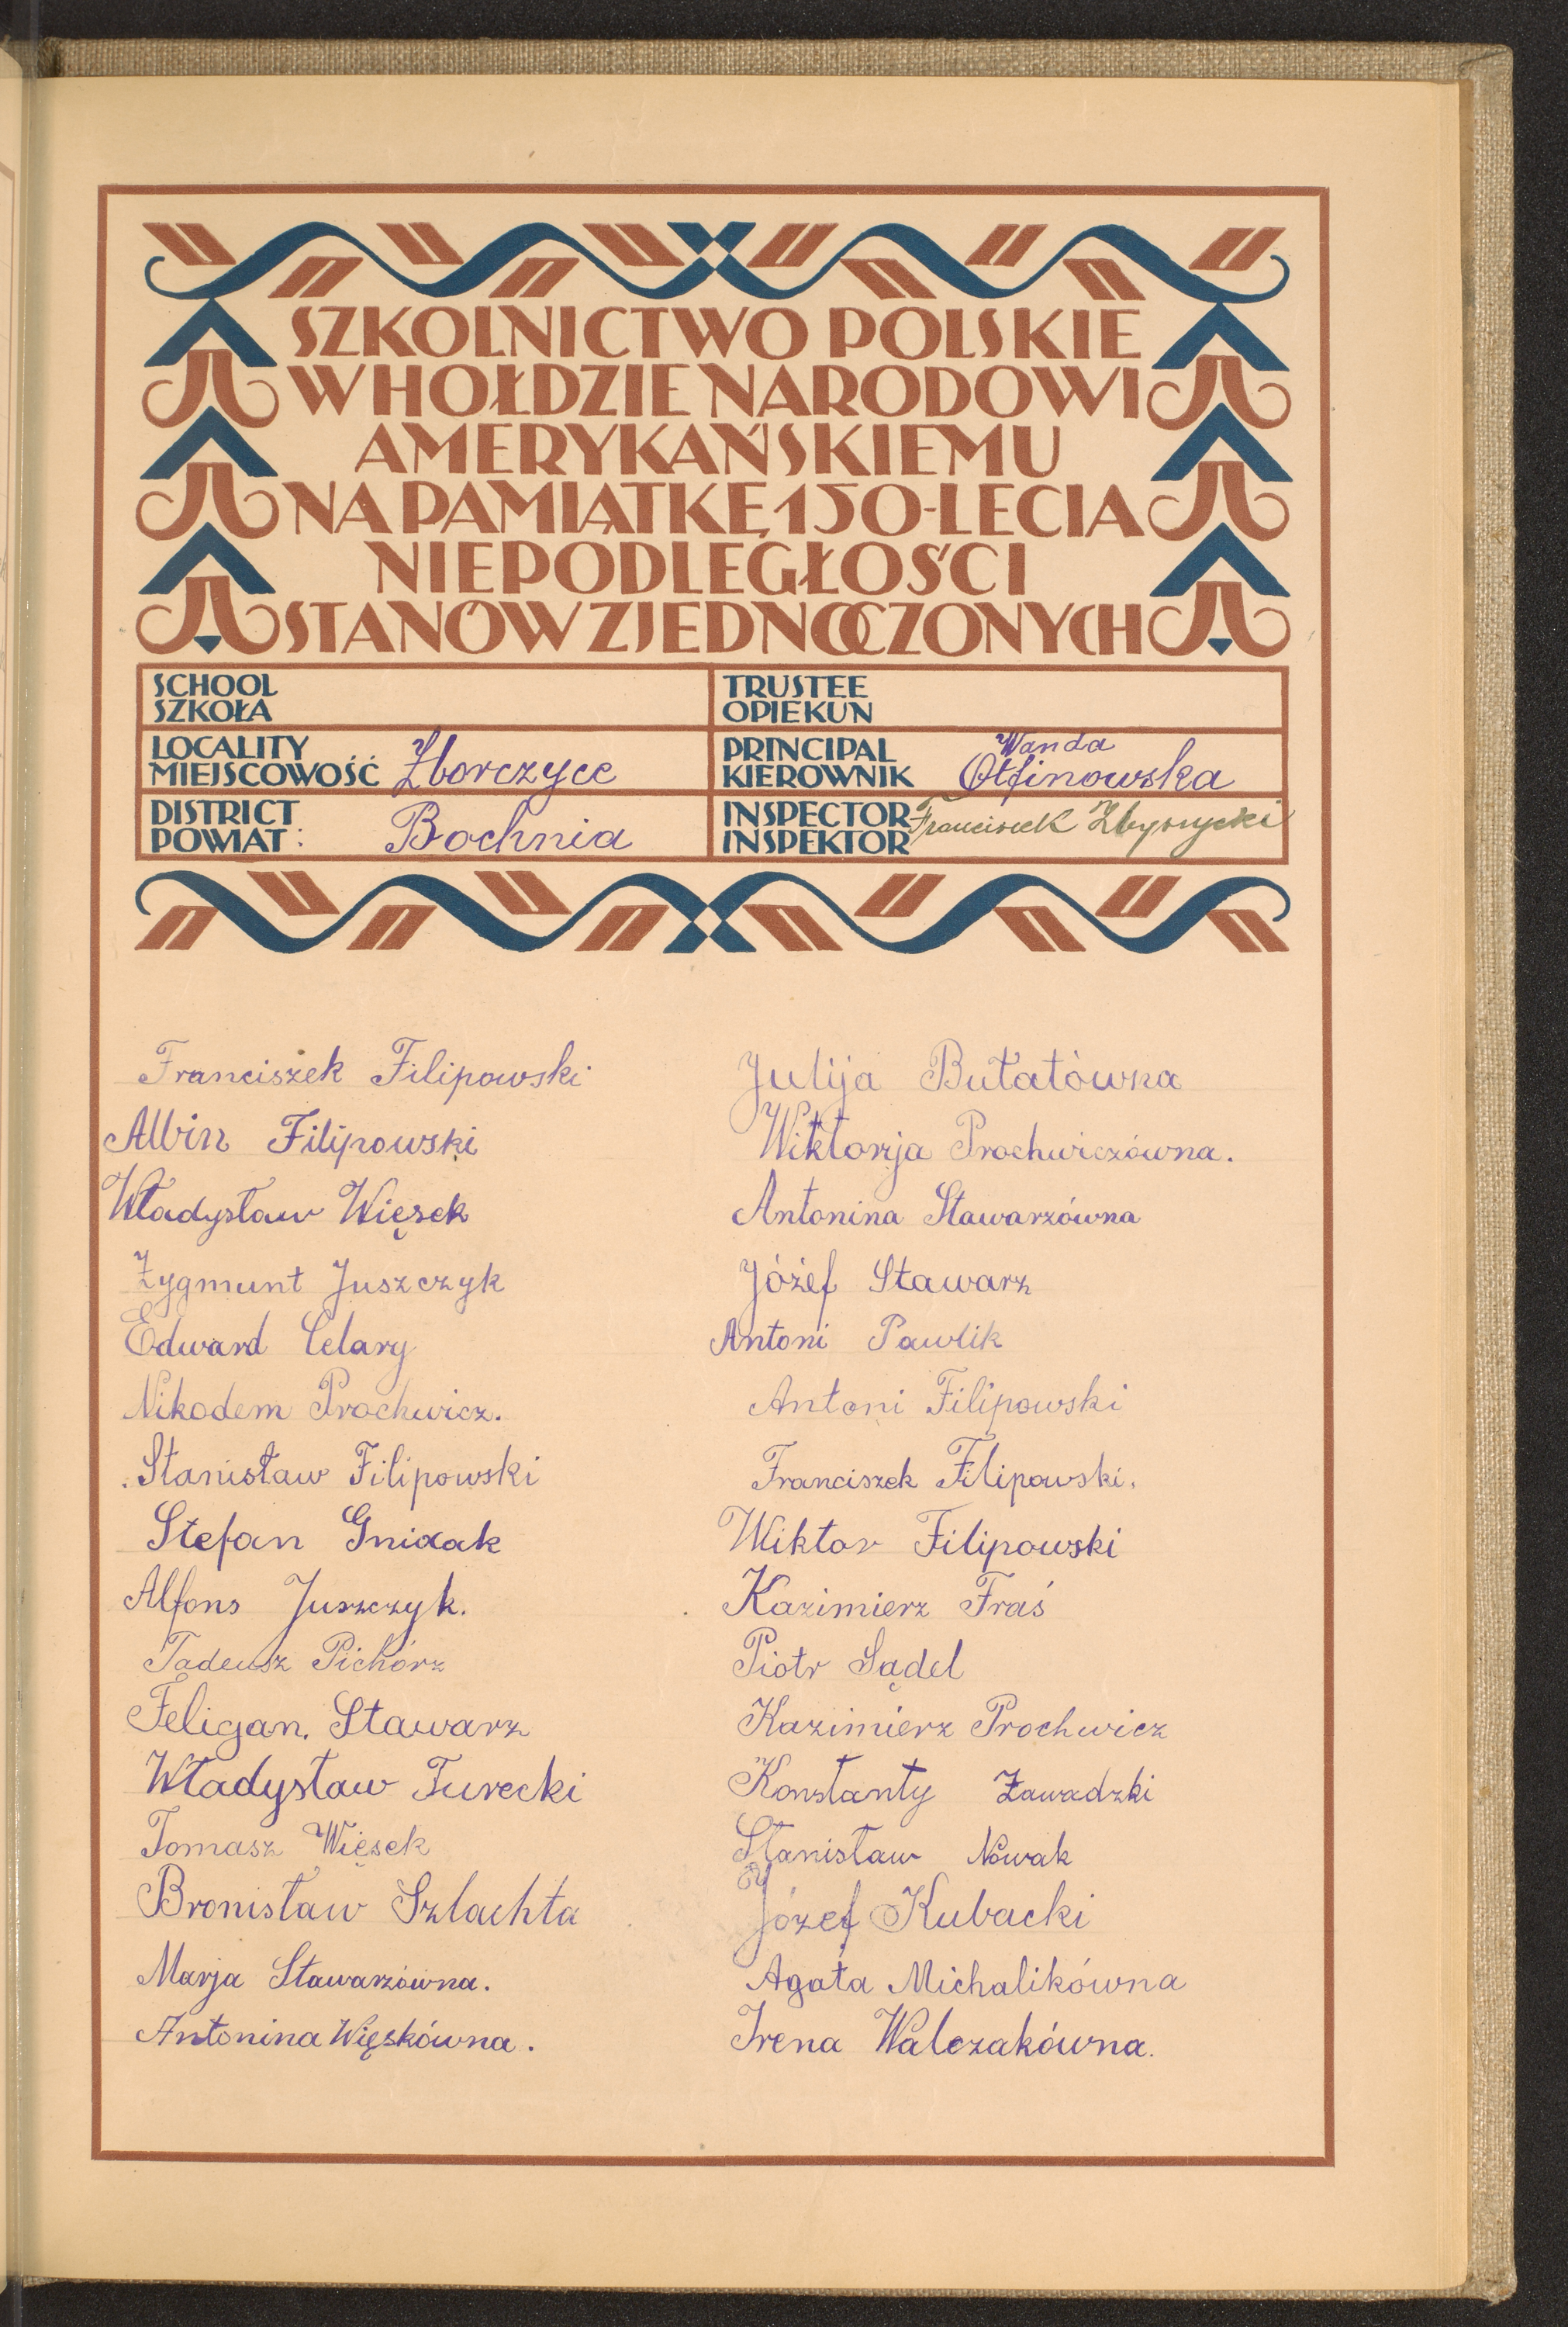 SZKOLNICTWO POLSKIE
W HOŁDZIE NARODOWI
AMERYKAŃSKIEMU
NA PAMIĄTKĘ 150-LECIA
NIEPODLEGŁOŚCI
STANÓW ZJEDNOCZONYCH
SCHOOL
SZKOŁA
TRUSTEE
OPIEKUN
LOCALITY
MIEJSCOWOŚĆ Zborczyce
PRINCIPAL Wanda
KIEROWNIK Otfinowska
DISTRICT
POWIAT: Bochnia
INSPECTOR
INSPEKTOR Franciszek
Franciszek Filipowski
Albin Filipowski
Władysław Więsek
Zygmunt Juszczyk
Edward Celary
Nikodem Prochwicz.
Stanisław Filipowski
Stefan Gnidak
Alfons Juszczyk.
Tadeusz Pichórz
Feligan. Stawarz
Władysław Turecki
Tomasz Więsek
Bronisław Szlachta
Marja Stawarzówna.
Antonina Więskówna.
Julija Butatówna
Wiktorja Prochwiczówna.
Antonina Stawarzówna
Józef Stawarz
Antoni Pawlik
Antoni Filipowski
Franciszek Filipowski.
Wiktor Filipowski
Kazimierz Fraś
Piotr Sądel
Kazimierz Prochwicz
Konstanty Zawadzki
Stanisław Nowak
Józef Kubacki
Agata Michalikówna
Irena Walczakówna.